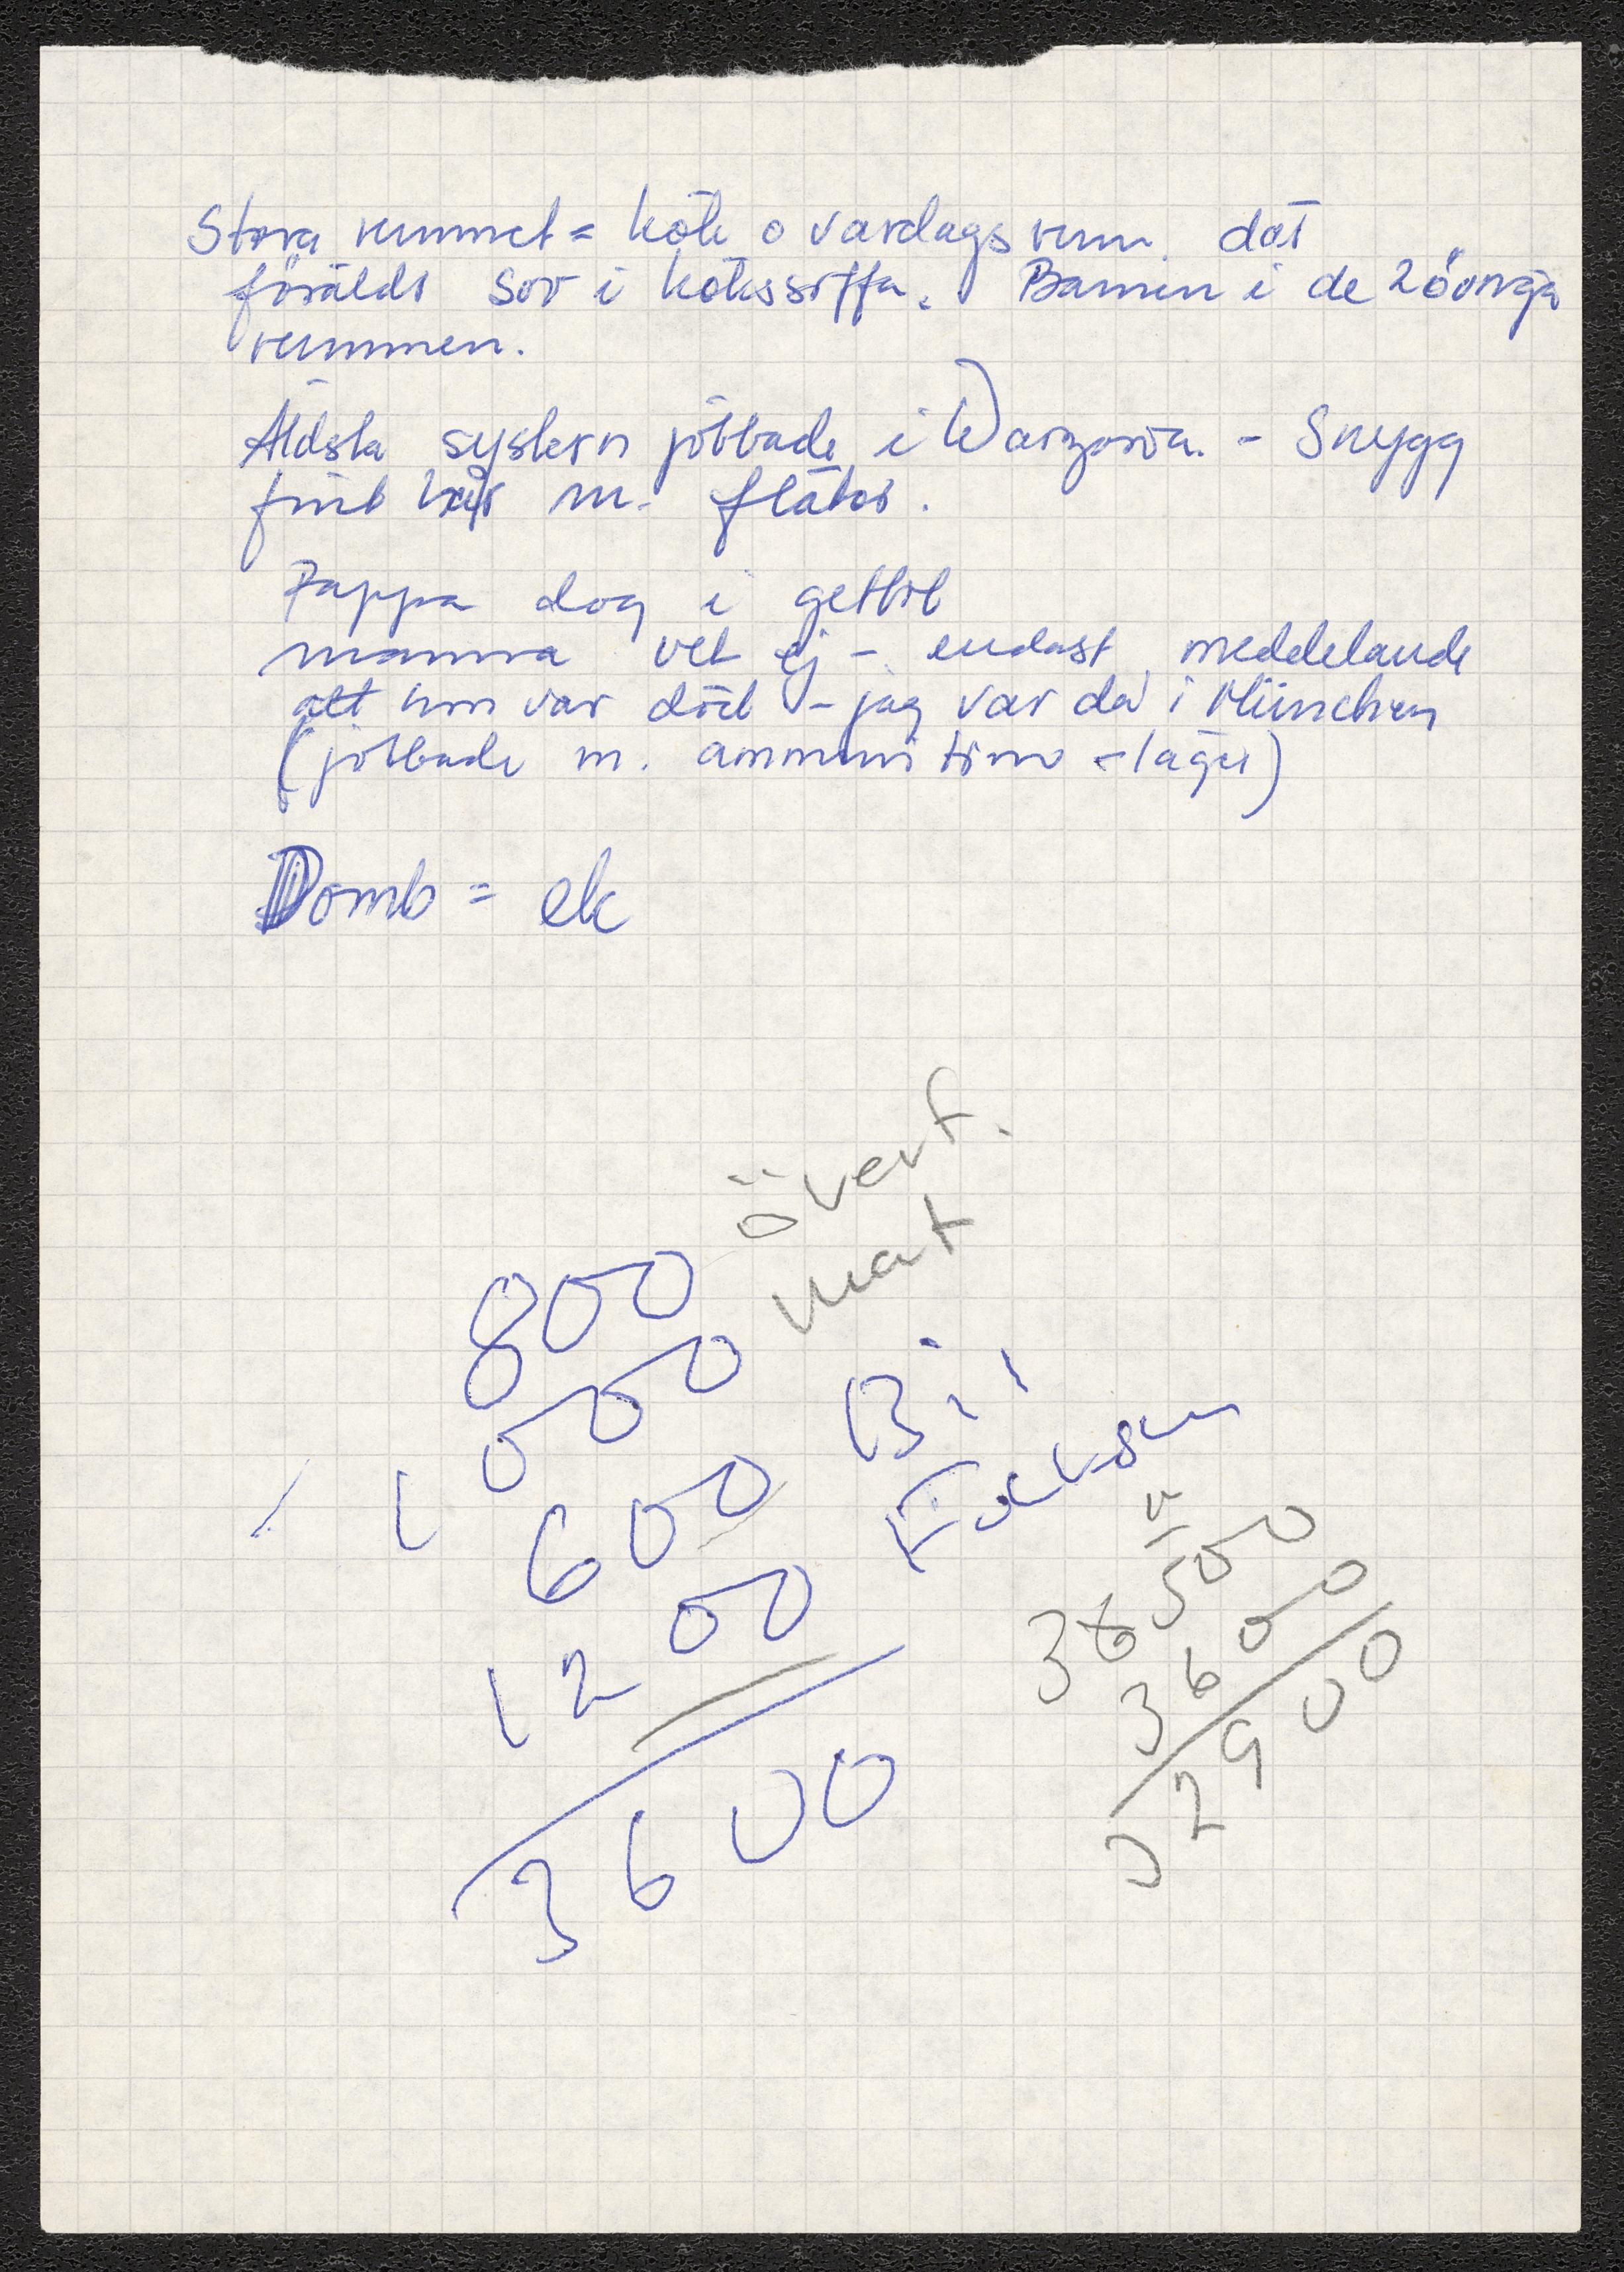 Stora rummet = kök o vardagsrum. där
föräldr sov i kökssoffa. Barnen i de 2 övriga
rummen.
Äldsta systern jobbade i Warzawa. - Snygg
fint hår m. flätor.
Pappa dog i gettot
mamma vet ej - endast meddelande
att hon var död - jag var då i München
(jobbade m. ammunitions -lager)
Domb = ek
övert.
800 mat
1000
600 Bil
1200
3600
38500
3600
32900